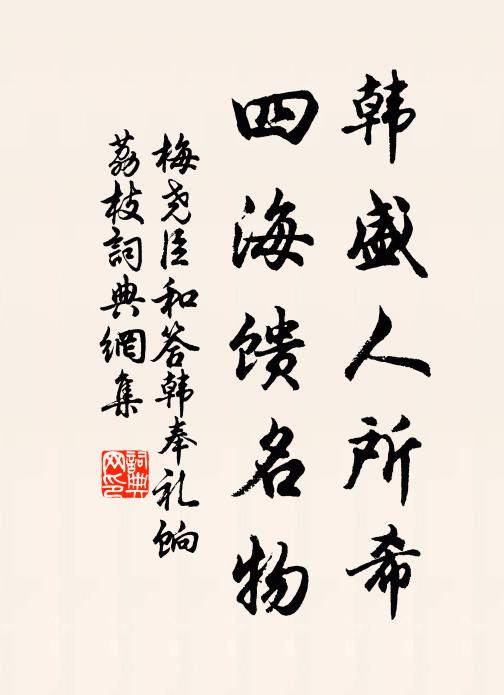 韩盛人所希
四海馈名物
梅尧臣和答韩奉礼饷
荔枝詞典網集
詞典
网印